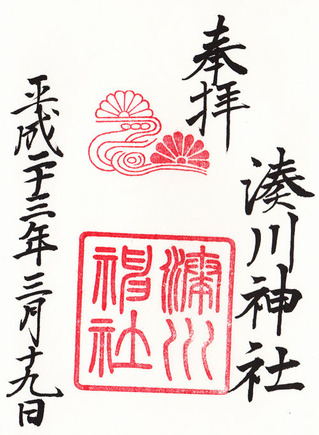 奉拝
湊川神社
湊川
神社
平成二十三年三月十九日